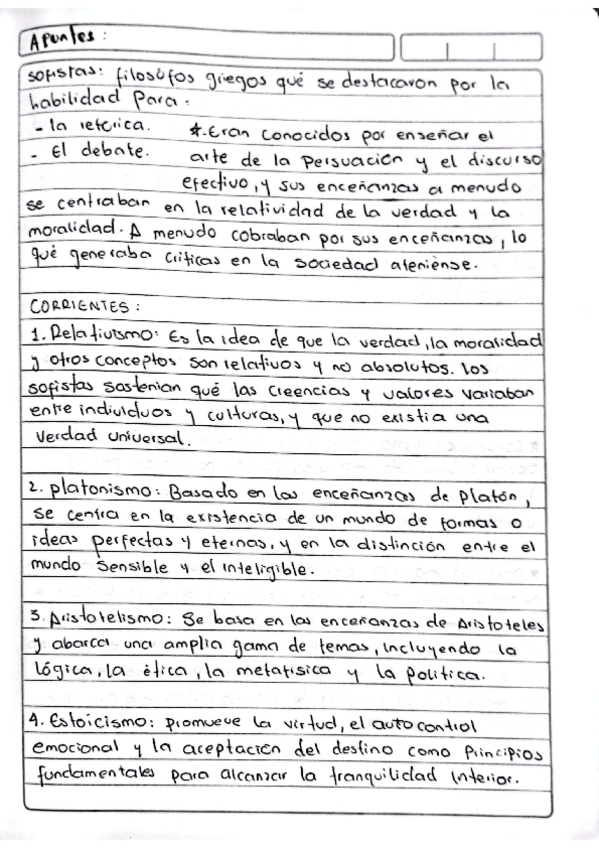 Apuntes:
sofistas: filosófos griegos qué se destacaron por la
habilidad Para:
- la retórica. *. Eran conocidos por enseñar el
- El debate. arte de la persuación y el discurso
efectivo, y sus enceñanzas a menudo
se centraban en la relatividad de la verdad y la
moralidad. A menudo cobraban por sus enceñanzas, lo
qué generaba críticas en la sociedad ateniense.
CORRIENTES:
1. Relativismo: Es la idea de que la verdad, la moralidad
y otros conceptos son relativos y no absolutos. los
sofistas sostenian qué las creencias y valores variaban
entre individuos y culturas, y que no existia una
verdad universal.
2. platonismo: Basado en las enceñanzas de Platón,
se centra en la existencia de un mundo de formas o
ideas perfectas y eternas, y en la distinción entre el
mundo sensible y el inteligible.
3. Aristotelismo: Se basa en las enceñanzas de Aristoteles
y abarca una amplia gama de temas, incluyendo la
lógica, la ética, la metafísica y la política.
4. Estoicismo: promueve la virtud, el autocontrol
emocional y la aceptación del destino como Principios
fundamentales para alcanzar la tranquilidad interior.